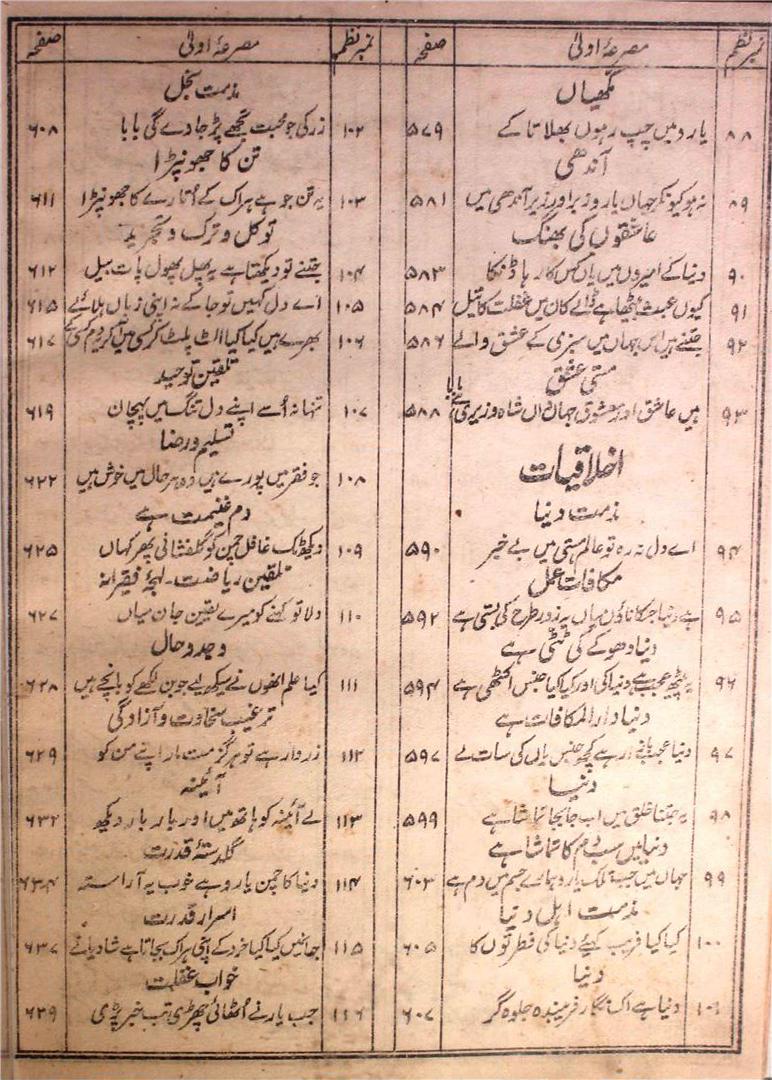 نمبر نظم مصرعۂ اولیٰ صفحہ
مکھیاں
۸۸ یارو میں چپ رہوں بھلا تا کے ۵۷۹
آندھی
۸۹ نہ ہو کیونکر جہاں یارو زیر اور زبر آندھی میں ۵۸۱
عاشقوں کی بھنگ
۹۰ دنیا کے امیروں میں یاں کس کا رہا ڈنکا ۵۸۳
۹۱ کیوں عبث بیٹھا ہے ڈالے کان میں غفلت کا تیل ۵۸۴
۹۲ جتنے ہیں اس جہاں میں سبزی کے عشق والے ۵۸۶
مستی عشق
۹۳ ہیں عاشق اور معشوق جہاں واں شاہ وزیری ہے بابا ۵۸۸
اخلاقیات
مذمت دنیا
۹۴ اے دل نہ رہ تو عالم ہستی میں بے خبر ۵۹۰
مکافات عمل
۹۵ ہے دنیا جسکا ناؤں میاں یہ زور طرح کی بستی ہے ۵۹۲
دنیا دھوکے کی ٹٹی ہے
۹۶ یہ پیٹھ عجب ہے دنیا کی اور کیا کیا جنس اکٹھی ہے ۵۹۴
دنیا دار المکافات ہے
۹۷ دنیا عجب بازار ہے کچھ جنس یاں کی سات لے ۵۹۷
دنیا
۹۸ یہ جتنا خلق میں اب جابجا تماشا ہے ۵۹۹
دنیا میں سب دم کا تماشا ہے
۹۹ جہاں میں جب تلک یارو ہمارے جسم میں دم ہے ۶۰۳
مذمت اہل دنیا
۱۰۰ کیا کیا فریب کہئے دنیا کی فطرتوں کا ۶۰۵
دنیا
۱۰۱ دنیا ہے اک نگار فریبندہ جلوہ گر ۶۰۷
نمبر نظم مصرعۂ اولیٰ صفحہ
مذمت بخل
۱۰۲ زر کی جو محبت تجھے پڑ جاوے گی بابا ۶۰۸
تن کا جھونپڑا
۱۰۳ یہ تن جو ہے ہر اک کے اُتارے کا جھونپڑا ۶۱۱
توکل و ترک و تجرید
۱۰۴ جتنے تو دیکھتا ہے یہ پھل پھول پات بیل ۶۱۲
۱۰۵ اے دل کہیں تو جا کے نہ اپنی زباں ہلائے ۶۱۵
۱۰۶ بھرے ہیں کیا کیا الٹ پلٹ کر کسی میں آکر دم کسی کے ۶۱۷
تلقین توحید
۱۰۷ تنہا نہ اُسے اپنے دل تنگ میں پہچان ۶۱۹
تسلیم و رضا
۱۰۸ جو فقر میں پورے ہیں وہ ہر حال میں خوش ہیں ۶۲۲
دم غنیمت ہے
۱۰۹ دیکھ ٹک غافل چمن کو گلفشانی پھر کہاں ۶۲۵
تلقین ریاضت۔ لہجۂ فقیرانہ
۱۱۰ دلا تو کہنے کو میرے یقین جان میاں ۶۲۷
وجد و حال
۱۱۱ کیا علم انھوں نے سیکھ لیے جو بن لکھے کو بانچے ہیں ۶۲۸
ترغیب سخاوت و آزادگی
۱۱۲ زردار ہے تو ہرگز مت مار اپنے من کو ۶۲۹
آئینہ
۱۱۳ لے آئینہ کو ہاتھ میں اور بار بار دیکھ ۶۳۲
گلدستۂ قدرت
۱۱۴ دنیا کا چمن یارو ہے خوب یہ آراستہ ۶۳۴
اسرار قدرت
۱۱۵ جہاں میں کیا کیا خرد کے اپنی ہر اک بجاتا ہے شادیانے ۶۳۷
خواب غفلت
۱۱۶ جب یار نے اُٹھائی چھڑی تب خبر پڑی ۶۳۹